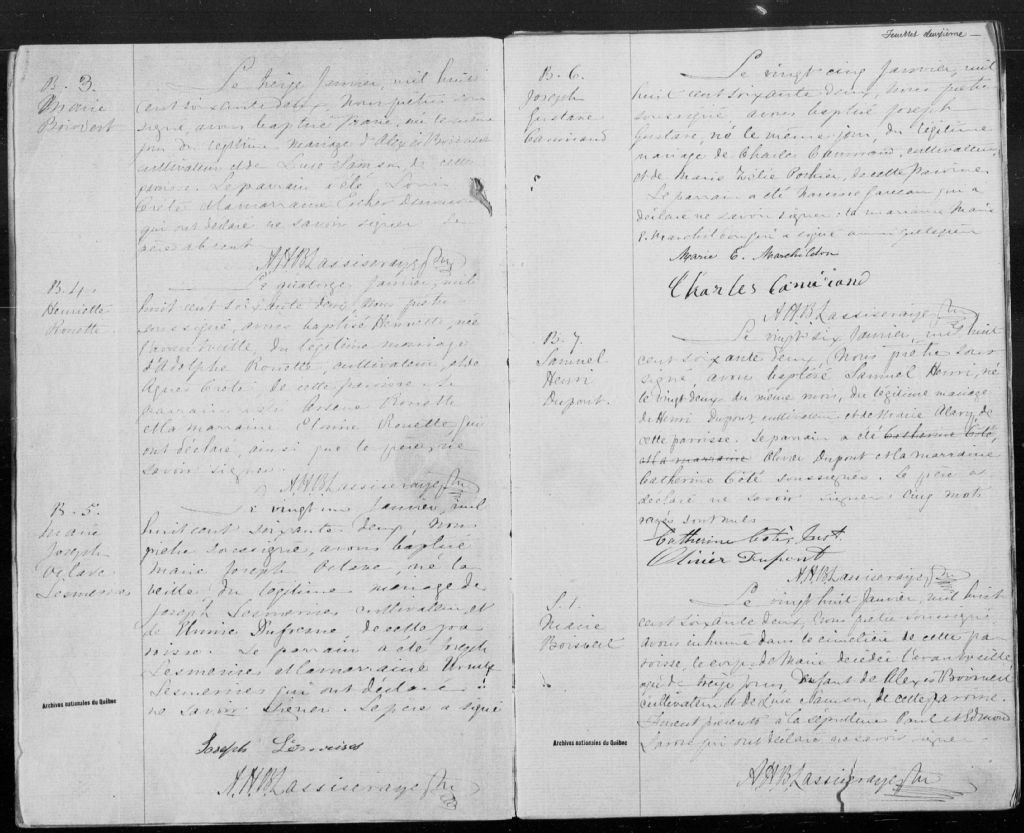 B. 3.
Marie
Boisvert
Le treize Janvier, mil huit
cent soixante deux, Nous prêtre sous
signé, avons baptisé Marie, née le même
jour du légitime mariage d'Alexis Boisvert
cultivateur et de Luce Samson, de cette
paroisse. Le parrain a été Louis
Coté et la marraine Esther
qui ont déclaré ne savoir signer. Le
père absent
A.H.B. Lassiseraye Ptre
B. 4.
Henriette
Rouette
Le quatorze Janvier, mil
huit cent soixante deux, nous prêtre
soussigné, avons baptisé Henriette, née
la veille, du légitime mariage
d'Adolphe Rouette, cultivateur, et de
Agnès Coté de cette paroisse. Le
parrain a été Arsène Rouette
et la marraine Elmire Rouette qui
ont déclaré, ainsi que le père, ne
savoir signer.
A.H.B. Lassiseraye Ptre
B. 5.
Marie
Joseph
Octave
Lesmerises
Le vingt un Janvier, mil
huit cent soixante deux, Nous
prêtre soussigné, avons baptisé
Marie Joseph Octave, né la
veille du légitime mariage de
Joseph Lesmerises cultivateur, et
de Elmire Dufresne, de cette pa
roisse. Le parrain a été Joseph
Lesmerises et la marraine
Lesmerises qui ont déclaré
ne savoir signer. Le père a signé
Joseph Lesmerises
A.H.B. Lassiseraye Ptre
Archives nationales du Québec
Feuillet deuxième
B. 6.
Joseph
Gustave
Camirand
Le vingt cinq Janvier, mil
huit cent soixante deux, nous prêtre
soussigné, avons baptisé Joseph
Gustave, né le même jour, du légitime
mariage de Charles Camirand, cultivateur,
et de Marie Zélie Poirier, de cette paroisse.
Le parrain a été Narcisse qui a
déclaré ne savoir signer: la marraine Marie
E. Marchildon qui a signé ainsi que le père
Marie E. Marchildon
Charles Camirand
A.H.B. Lassiseraye Ptre
B. 7.
Samuel
Henri
Dupont.
Le vingt six Janvier, mil huit
cent soixante deux, Nous prêtre sous
signé, avons baptisé Samuel Henri, né
le vingt deux du même mois, du légitime mariage
de Henri Dupont, cultivateur et de Marie Alary, de
cette paroisse. Le parrain a été Catherine Côté,
et la marraine Olivier Dupont et la marraine
Catherine Côté soussignés. Le père a
déclaré ne savoir signer. Cinq mots
rayés sont nuls
Catherine Côté, Inst.
Olivier Dupont
A.H.B. Lassiseraye Ptre
S. 1.
Marie
Boisvert
Le vingt huit Janvier, mil huit
cent soixante deux, Nous prêtre soussigné,
avons inhumé dans le cimetière de cette pa
roisse, le corps de Marie décédée l'avant veille,
agée de treize jours, Enfant de Alexis Boisvert
cultivateur et de Luce Samson, de cette paroisse.
Furent présents à la sépulture Paul et Edmond
Savoie qui ont déclaré ne savoir signer
A.H.B. Lassiseraye Ptre
Archives nationales du Québec